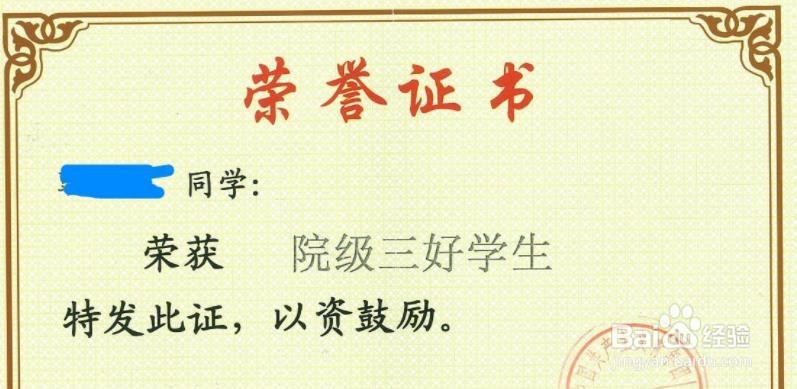 荣誉证书
同学：
荣获 院级三好学生
特发此证，以资鼓励。
Baidu经验
jingyan.baidu.com